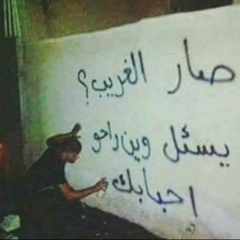 صار الغريب؟
يسئل وين راحو
احبابك